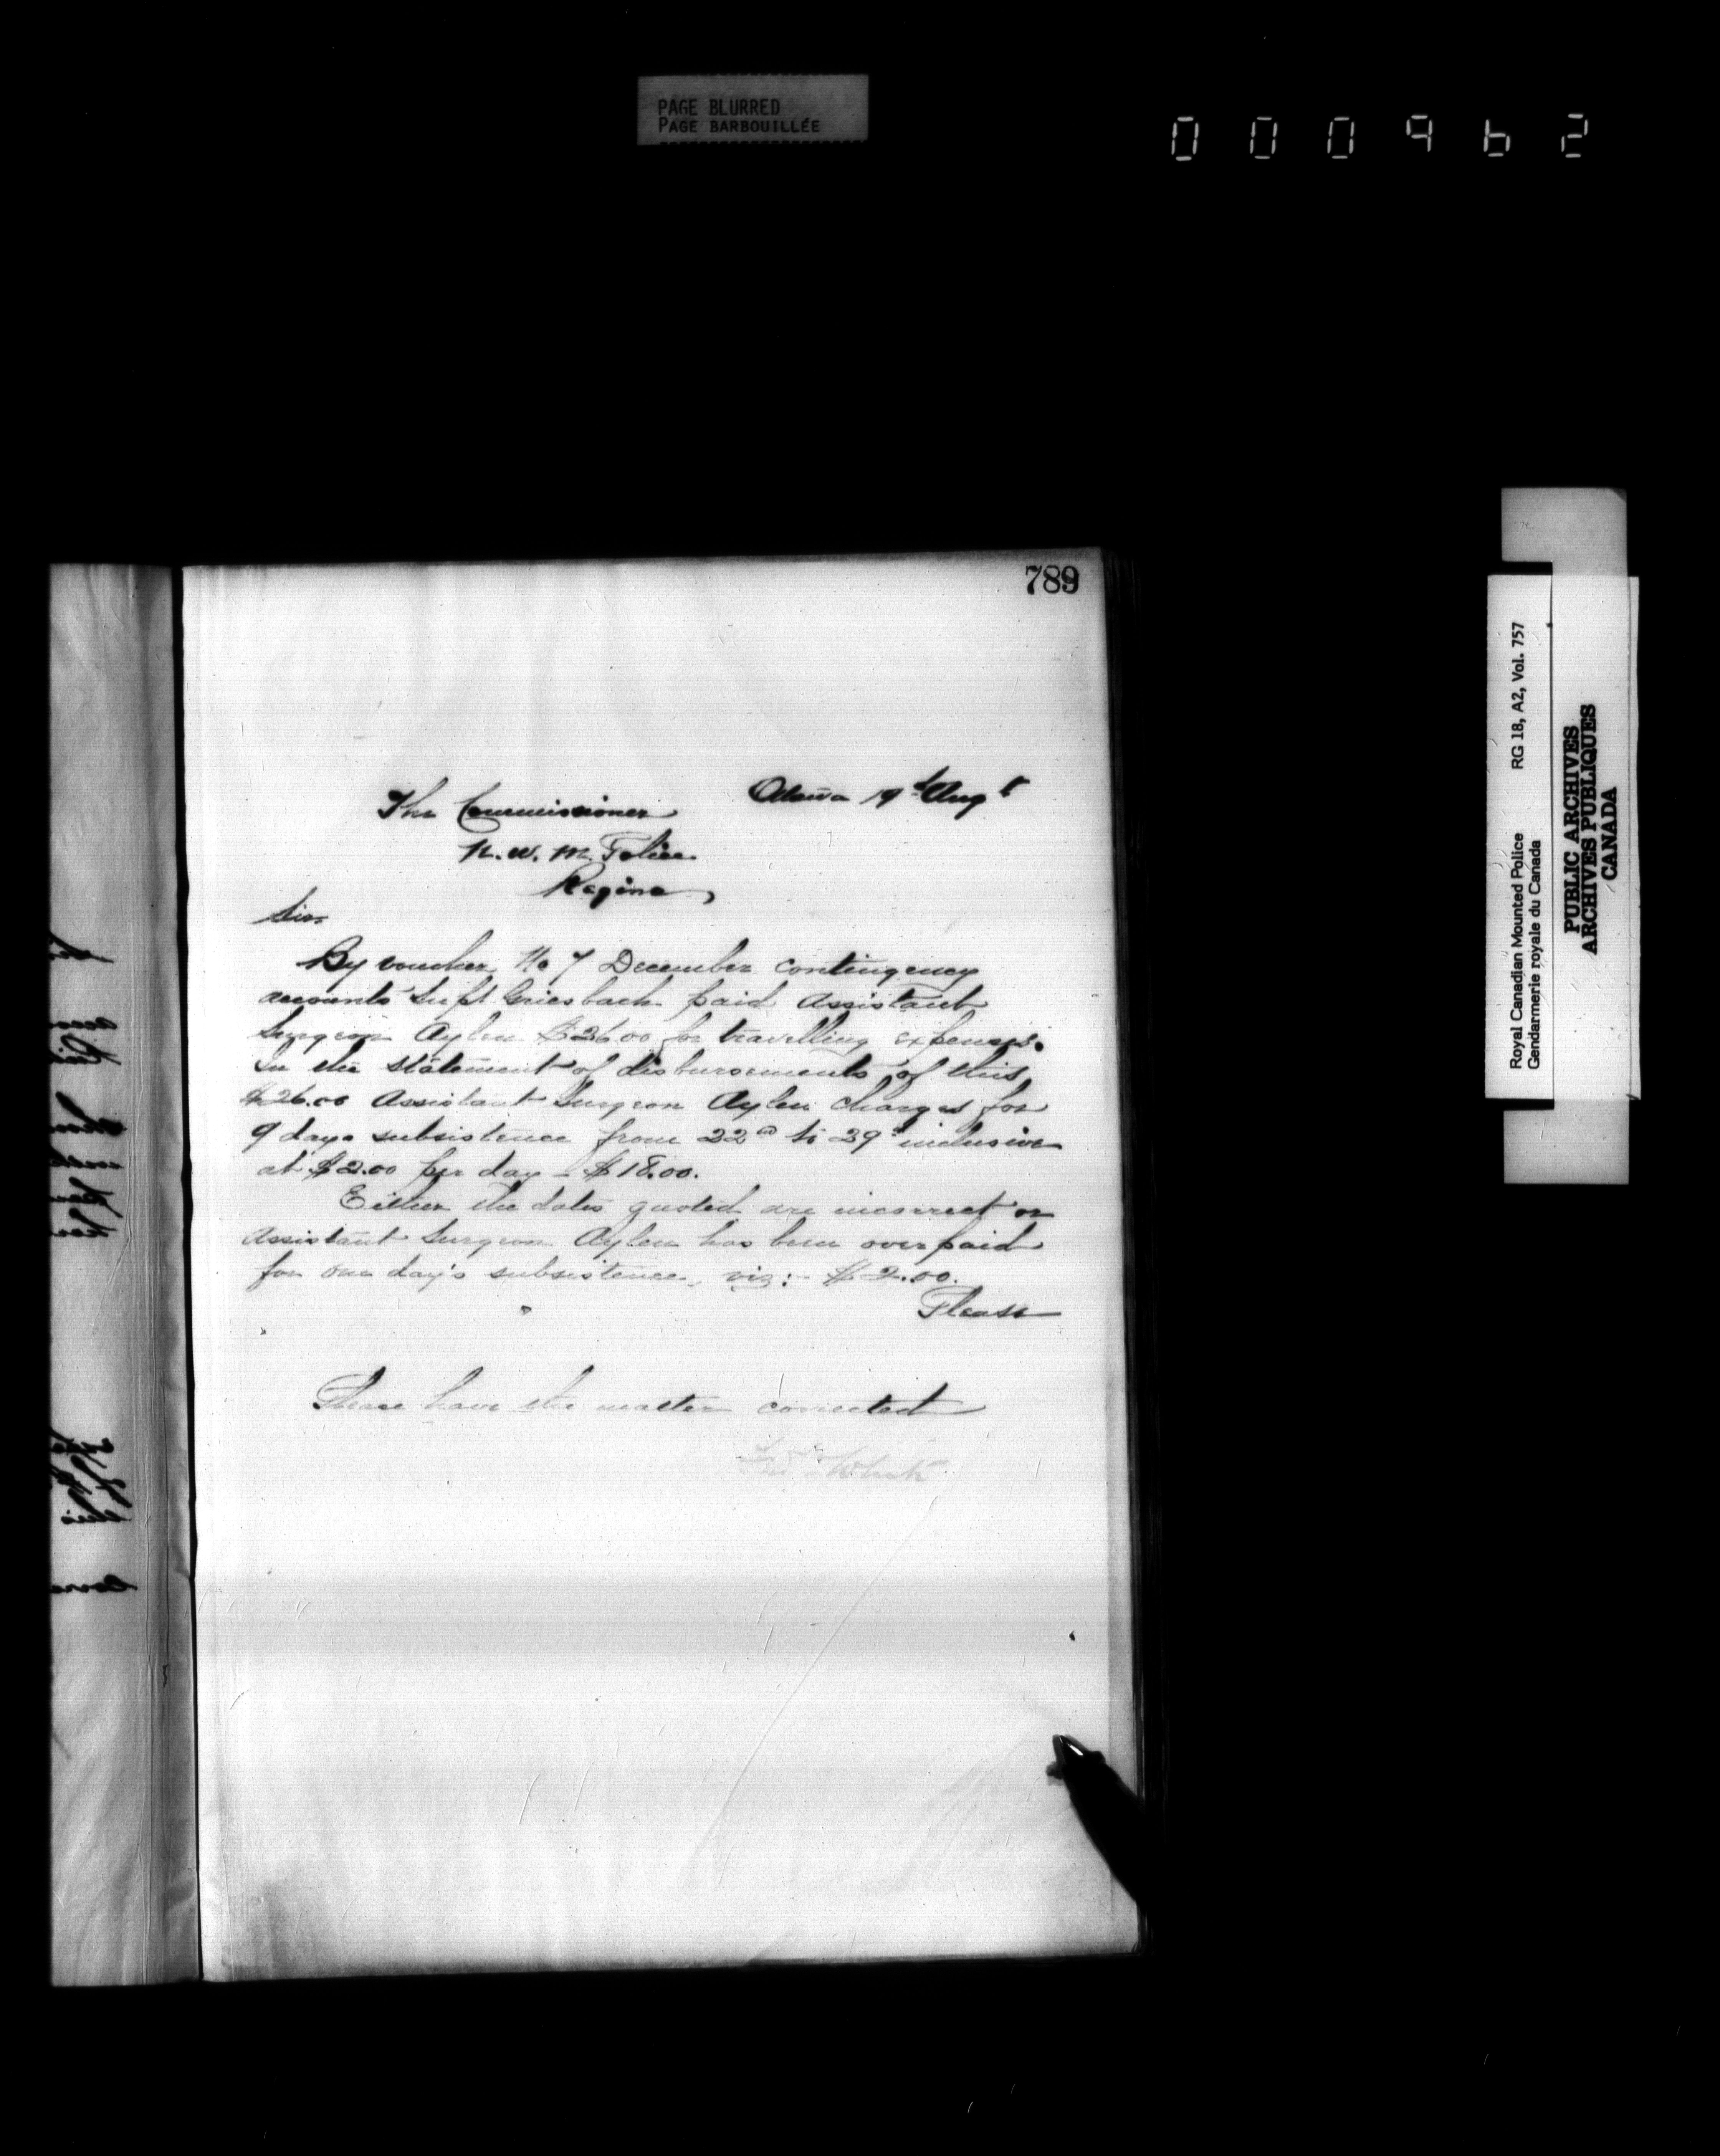 PAGE BLURRED
PAGE BARBOUILLÉE
000962
789
Ottawa 19th Augt
The Commissioner
N. W. M. Police
Regina,
Sir
By voucher No 7 December contingency
accounts Supt Griesbach paid Assistant
Surgeon Aylen $26.00 for travelling expenses.
In the statement of disbursements of this
$26.00 Assistant Surgeon Aylen charges for
9 days subsistence from 22nd to 29th inclusive
at $2.00 per day - $18.00.
Either the dates quoted are incorrect or
Assistant Surgeon Aylen has been overpaid
for one day's subsistence, viz:- $2.00.
Please
Please have the matter corrected
Fred White
Royal Canadian Mounted Police RG 18, A2, Vol. 757
Gendarmerie royale du Canada
PUBLIC ARCHIVES
ARCHIVES PUBLIQUES
CANADA